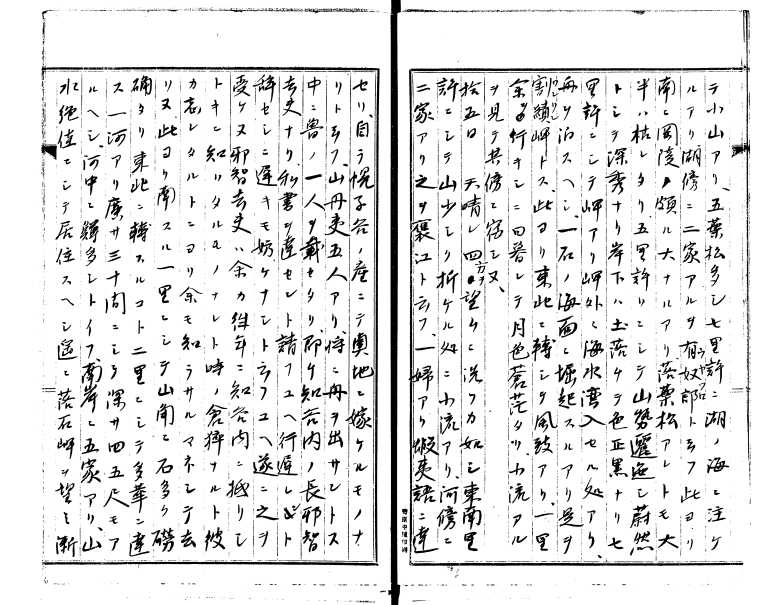 テ小山アリ、五葉松多シ七里許ニ湖ノ海ニ注ケ
ルアリ湖傍ニ二家アルヲ有奴郎トヨフ此ヨリ
南ニ岡陵ノ頗ル大ナルアリ落葉松アレトモ大
半ハ枯レタリ五里許リニシテ山勢邐迤シ蔚然
トシテ深秀ナリ岸下ハ土落ケテ色正黒ナリ七
里許ニシテ岬アリ岬外ニ海水湾入セル処アリ、
舟ヲ泊スヘシ一石ノ海面ニ堀起スルアリ是ヲ
割鎖岬トス、此ヨリ東北ニ轉シテ風致アリ、一里
余ヲ行キシニ日暮レテ月色蒼茫タリ小流アル
ヲ見テ其傍ニ宿シヌ、
拾五日 天晴レ四方ヲ望ムニ洗フカ如シ東南里
許ニシテ山少シク折ケル処ニ小流アリ、河傍ニ
二家アリ之ヲ褒江ト云フ一婦アリ蝦夷語ニ達
セリ、自ラ幌子谷ノ産ニテ輿地ニ嫁ケルモノナ
リト云フ、山丹夷五人アリ、将ニ舟ヲ出サントス
中ニ魯ノ一人ヲ載セタリ、即ケ知吉内ノ長邪智
吉史ナリ、私書ヲ達セント請フユヘ行遅レンコト
辞セシニ遅キモ妨ケナシト云フユヘ遂ニ之ヲ
受ケヌ邪智吉史ハ余カ往年ニ知吉内ニ抵リシ
トキニ知リタルモノナレト時ノ倉猝ナルト彼
カ忘レタルトニヨリ余モ知ラサルマネシテ去
リヌ此ヨリ南スル一里ニシテ山開ニ石多ク磅
确タリ東北ニ轉スルコト二里ニシテ多華ニ達
ス一河アリ廣サ三十間ニシテ深サ四五尺モア
ルヘシ河中ニ鱒多シトイフ、南岸ニ五家アリ、山
水絶佳ニシテ居住スヘシ遙ニ落石岬ヲ望ミ漸